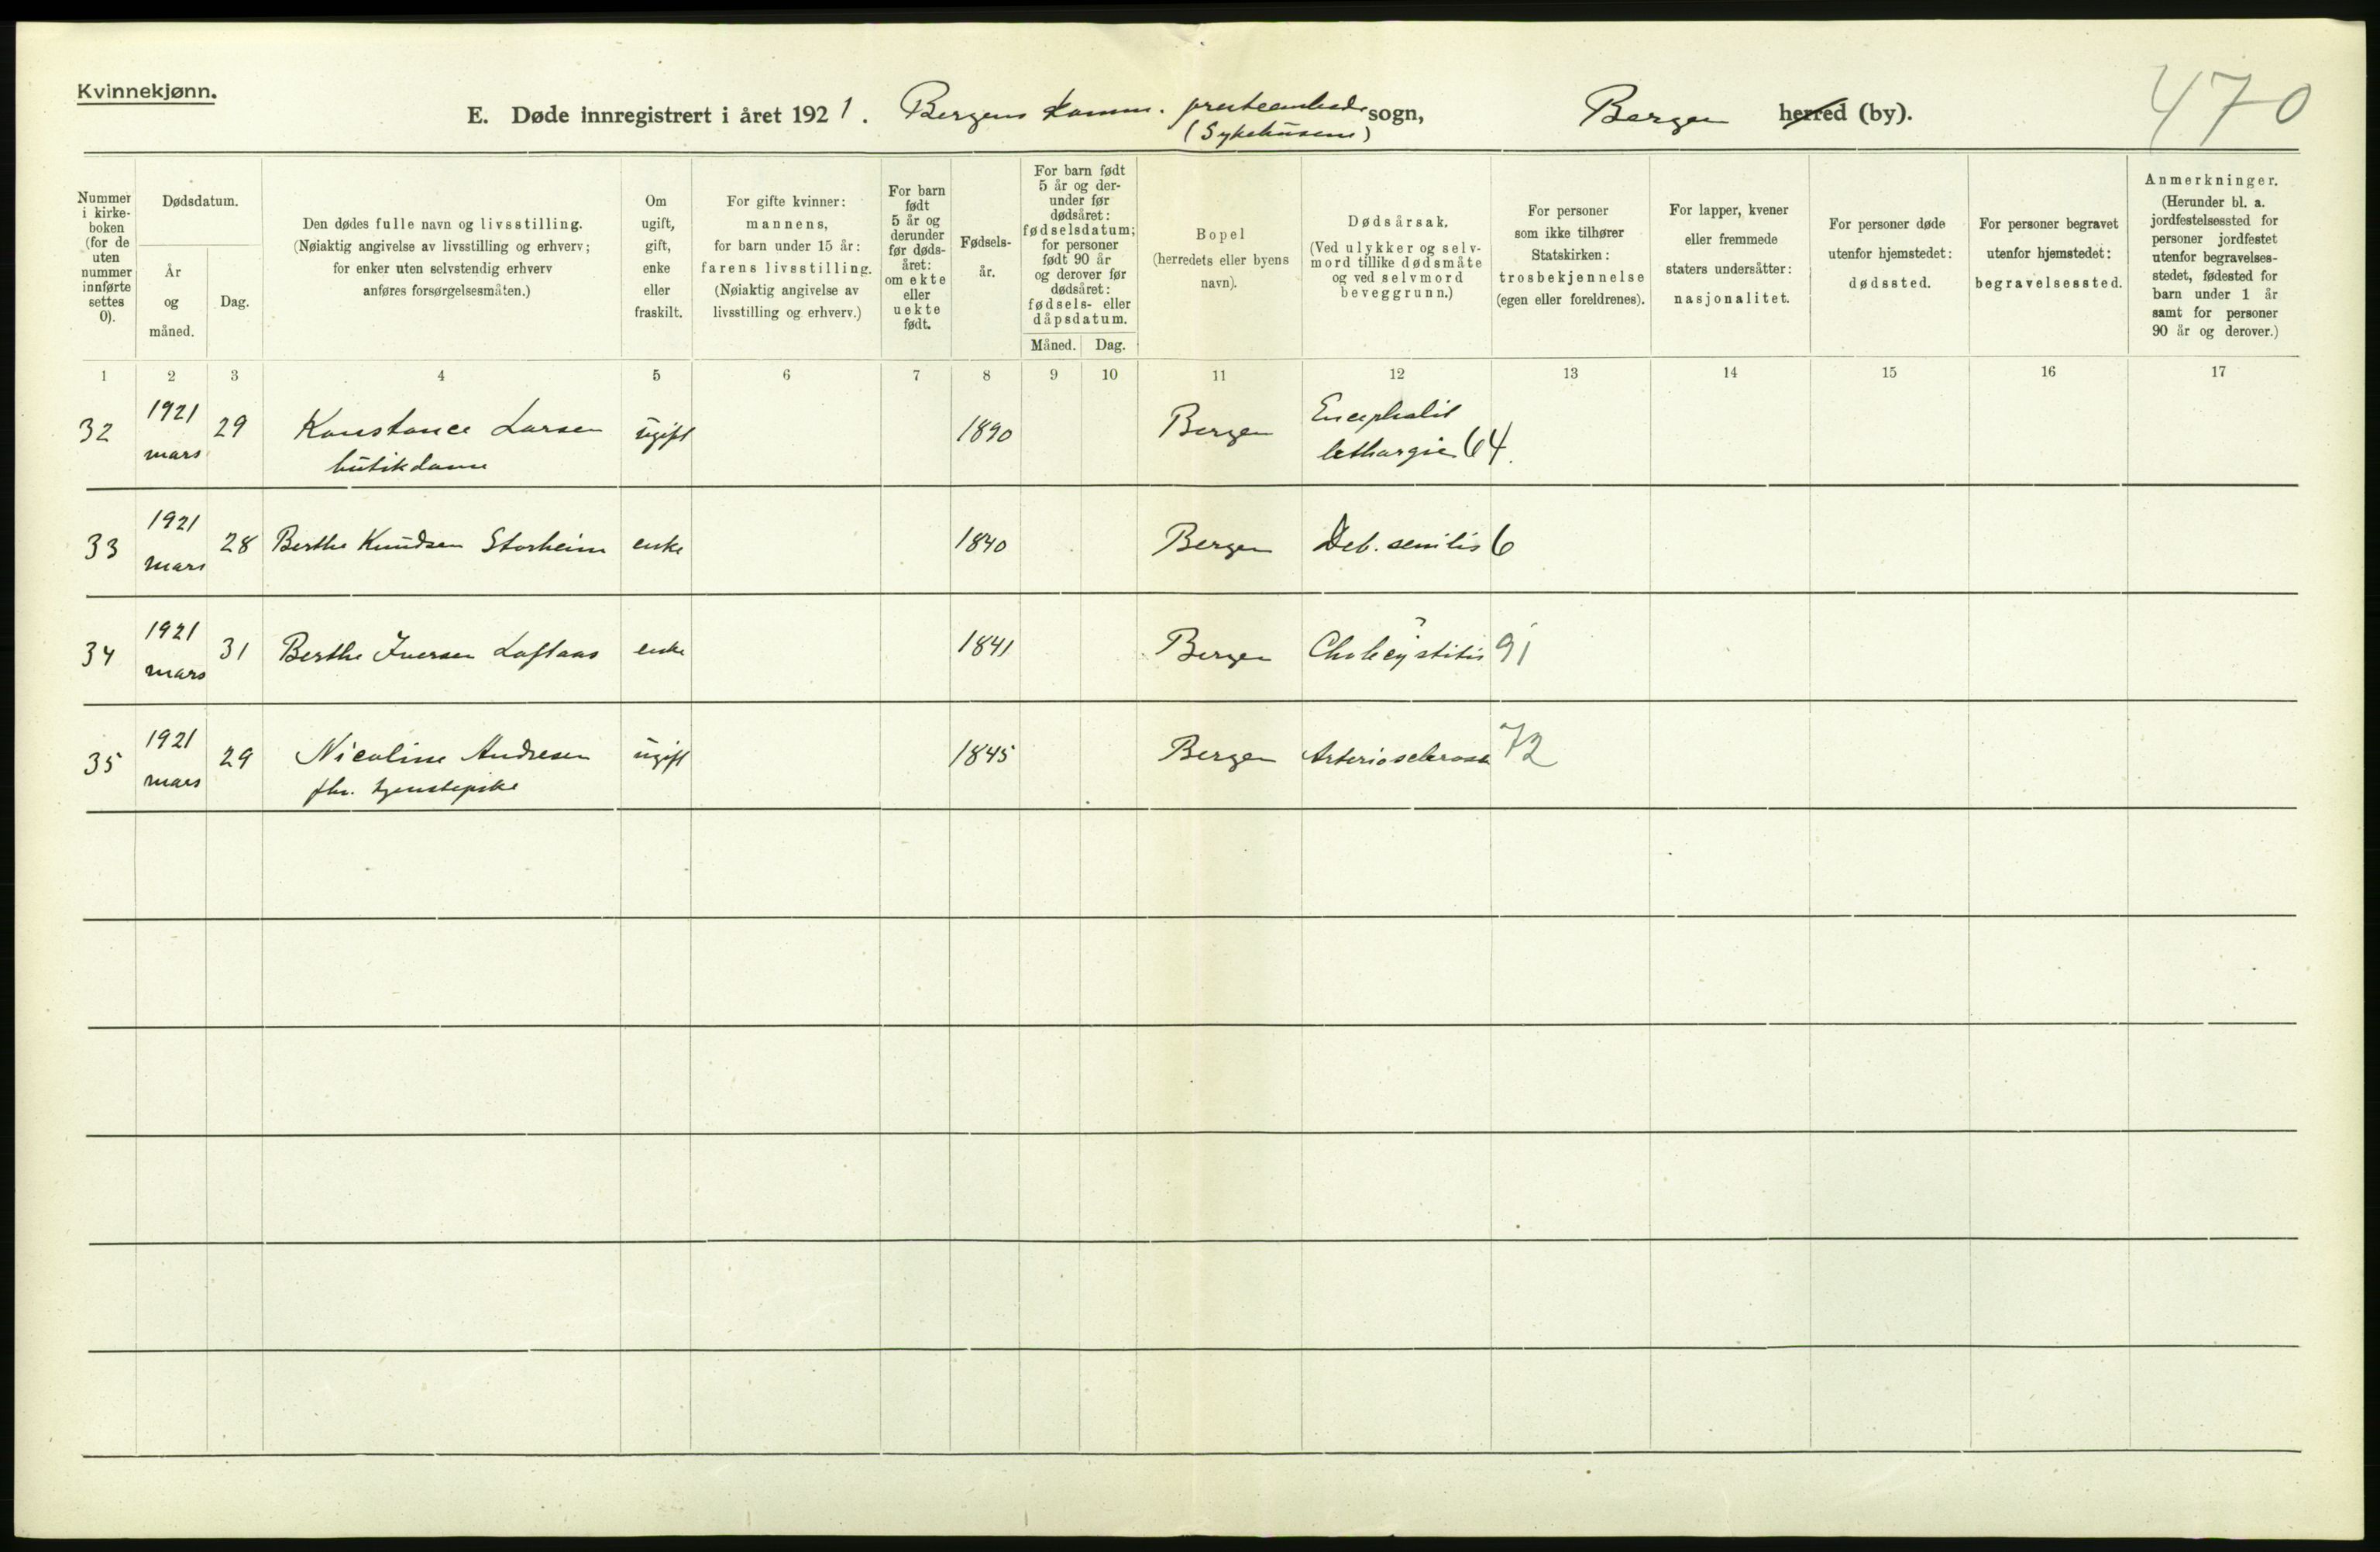 Kvinnekjønn.
E. Døde innregistrert i året 1921. Bergens komm. presteembede sogn, Bergen herred (by).
(Sykehusene)
470
Nummer i kirke-boken (for de uten nummer innførte settes 0).
Dødsdatum.
År og måned.
Dag.
Den dødes fulle navn og livsstilling.
(Nøiaktig angivelse av livsstilling og erhverv;
for enker uten selvstendig erhverv
anføres forsørgelsesmåten.)
Om
ugift,
gift,
enke
eller
fraskilt.
For gifte kvinner:
mannens,
for barn under 15 år:
farens livsstilling.
(Nøiaktig angivelse av
livsstilling og erhverv.)
For barn
født
5 år og
derunder
før døds-
året:
om ekte
eller
uekte
født.
Fødsels-
år.
For barn født
5 år og der-
under før
dødsåret:
fødselsdatum;
for personer
født 90 år
og derover før
dødsåret:
fødsels- eller
dåpsdatum.
Måned. Dag.
Bopel
(herredets eller byens
navn).
Dødsårsak.
(Ved ulykker og selv-
mord tillike dødsmåte
og ved selvmord
beveggrunn.)
For personer
som ikke tilhører
Statskirken:
trosbekjennelse
(egen eller foreldrenes).
For lapper, kvener
eller fremmede
staters undersåtter:
nasjonalitet.
For personer døde
utenfor hjemstedet:
dødssted.
For personer begravet
utenfor hjemstedet:
begravelsessted.
Anmerkninger.
(Herunder bl. a.
jordfestelsessted for
personer jordfestet
utenfor begravelses-
stedet, fødested for
barn under 1 år
samt for personer
90 år og derover.)
1 2 3 4 5 6 7 8 9 10 11 12 13 14 15 16 17
32 1921 mars 29 Konstance Larsen ugift 1890 Bergen Encephalit
butikdame lethargie 64.
33 1921 mars 28 Berthe Knudsen Storheim enke 1840 Bergen Deb. senilis 6
34 1921 mars 31 Berthe Iversen Loftaas enke 1841 Bergen Cholecystitis ? 91
35 1921 mars 29 Nicoline Andresen ugift 1845 Bergen Arteriosclerose 72
fhv. tjenestepike